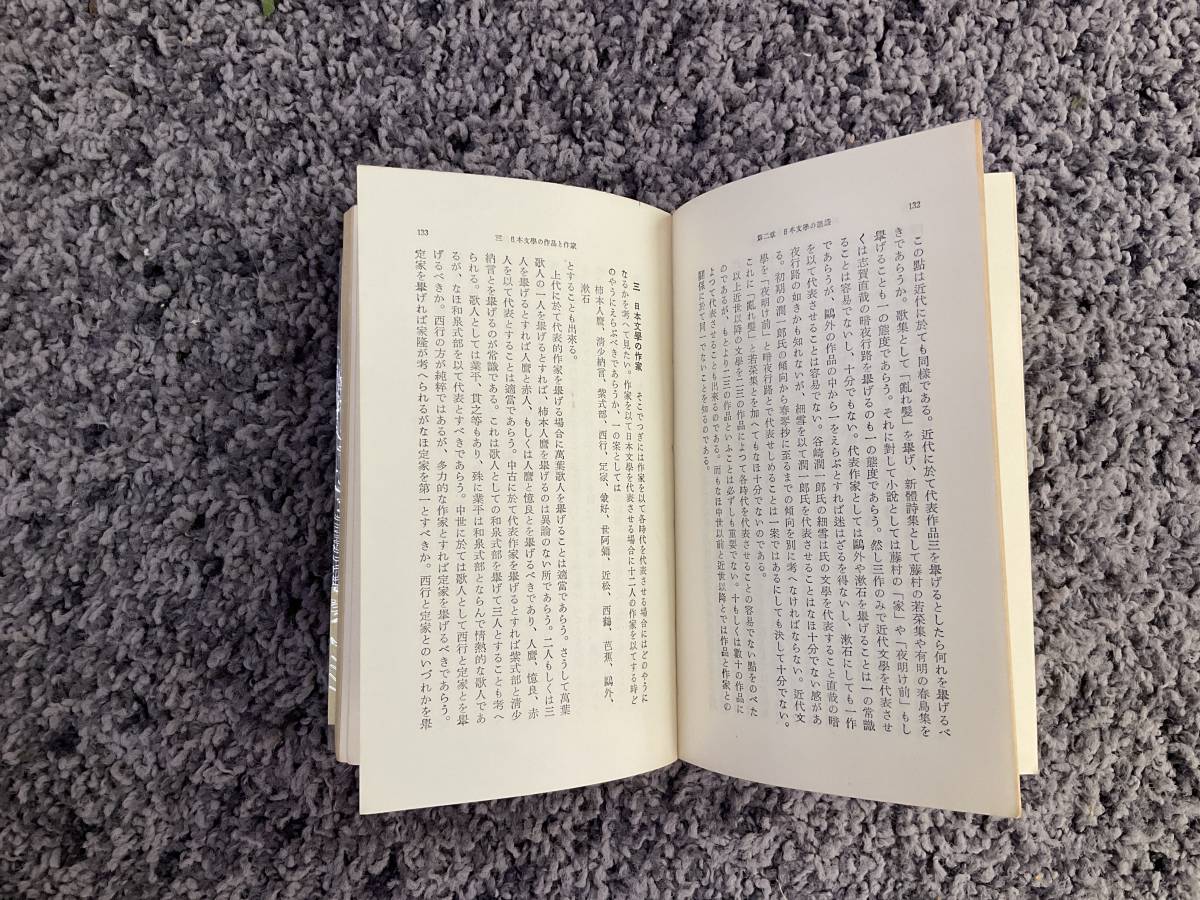 132
第二章 日本文學の建設
この點は近代に於ても同樣である。近代に於て代表作品三を擧げるとしたら何れを擧げるべ
きであらうか。歌集として「亂れ髮」を擧げ、新體詩集として藤村の若菜集や有明の春鳥集を
擧げることも一の態度であらう。それに對して小說としては藤村の「家」や「夜明け前」もし
くは志賀直哉の暗夜行路を擧げるのも一の態度であらう。然し三作のみで近代文學を代表させ
ることは容易でないし、十分でもない。代表作家としては鷗外や漱石を擧げることは一の常識
であらうが、鷗外の作品の中から一をえらぶとすれば迷はざるを得ないし、漱石にしても一作
を以て代表させることは容易でない。谷崎潤一郎氏の細雪は氏の文學を代表すること直哉の暗
夜行路の如きかも知れないが、細雪を以て潤一郎氏を代表させることはなほ十分でない感があ
る。初期の潤一郎氏の傾向から春琴抄に至るまでの傾向を別に考へなければならない。近代文
學を「夜明け前」と暗夜行路とで代表せしめることは一案ではあるにしても決して十分でない。
これに「亂れ髮」と若菜集とを加へてもなほ十分でないのである。
以上近世以降の文學を二三の作品によつて各時代を代表させることの容易でない點をのべた
のであるが、もとより二三の作品といふことは必ずしも重要でない。十もしくは數十の作品に
よつて代表させることも出來るのである。而もなほ中世以前と近世以降とでは作品と作家との
關係に於て同一でないことを知るのである。
133
三 日本文學の作品と作家
三 日本文學の作家 そこでつぎには作家を以て各時代を代表させる場合にはどのやうに
なるかを考へて見たい。作家を以て日本文學を代表させる場合に十二人の作家を以てする時ど
のやうにえらぶべきであらうか、一の案としては
柿本人麿、淸少納言、紫式部、西行、定家、兼好、世阿彌、近松、西鶴、芭蕉、鷗外、
漱石
とすることも出來る。
上代に於て代表的作家を擧げる場合に萬葉歌人を擧げることは適當であらう。さうして萬葉
歌人の一人を擧げるとすれば、柿本人麿を擧げるのは異論のない所であらう。二人もしくは三
人を擧げるとすれば人麿と赤人、もしくは人麿と憶良とを擧げるべきであり、人麿、憶良、赤
人を以て代表とすることは適當であらう。中古に於て代表作家を擧げるとすれば紫式部と淸少
納言とを擧げるのが常識である。これは歌人としての和泉式部を擧げて三人とすることも考へ
られる。歌人としては業平、貫之等もあり、殊に業平は和泉式部とならんで情熱的な歌人であ
るが、なほ和泉式部を以て代表とすべきであらう。中世に於ては歌人として西行と定家とを擧
げるべきか。西行の方が純粹ではあるが、多力的な作家とすれば定家を擧げるべきであらう。
定家を擧げれば家隆が考へられるがなほ定家を第一とすべきか。西行と定家とのいづれかを擧